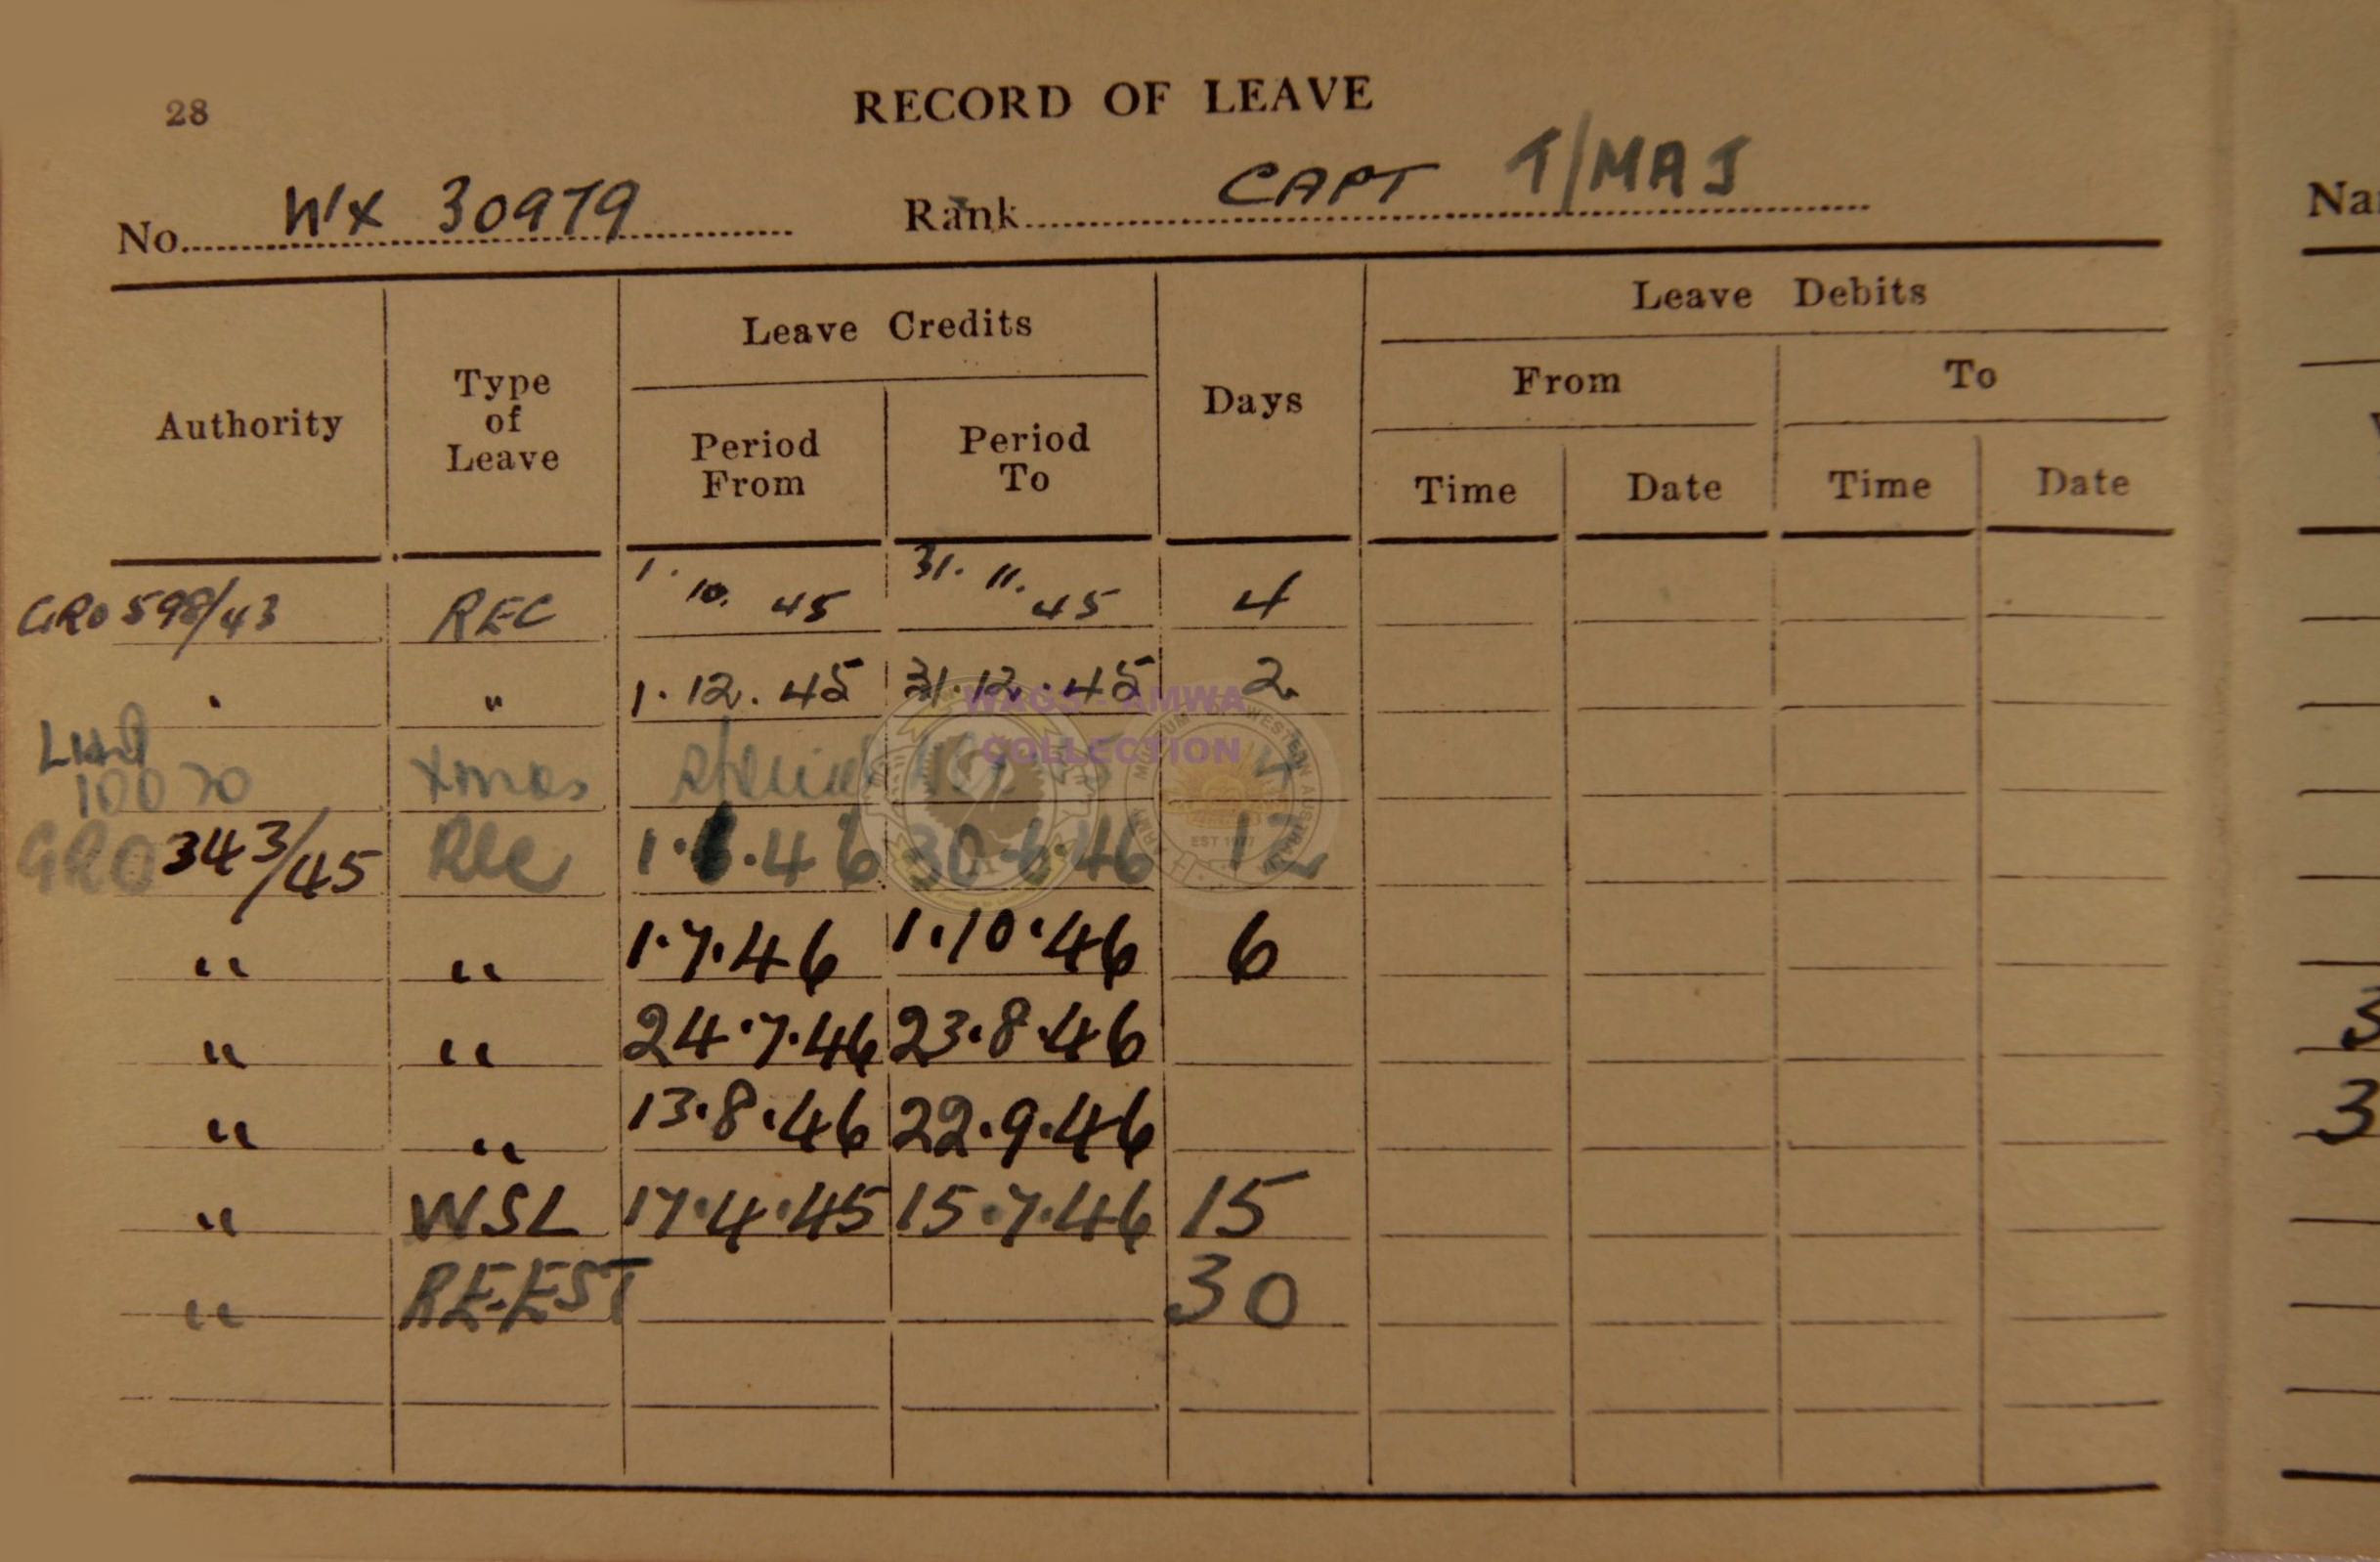 28
RECORD OF LEAVE
No. WX 30979 Rank CAPT T/MAJ
Na
Authority
Type of Leave
Leave Credits
Period From
Period To
Days
Leave Debits
From
To
Time
Date
Time
Date
GRO 598/43 REC 1. 10. 45 31. 11. 45 4
" " 1.12.45 31.12.45 2
100 Xmas special 4
GRO 343/45 Rec 1. .46 30.6.46 12
" " 1.7.46 1.10.46 6
" " 24.7.46 23.8.46
" " 13.8.46 22.9.46
" WSL 17.4.45 15.7.46 15
" RE-EST 30
3
3
WAGS - AMWA
COLLECTION
EST 1977